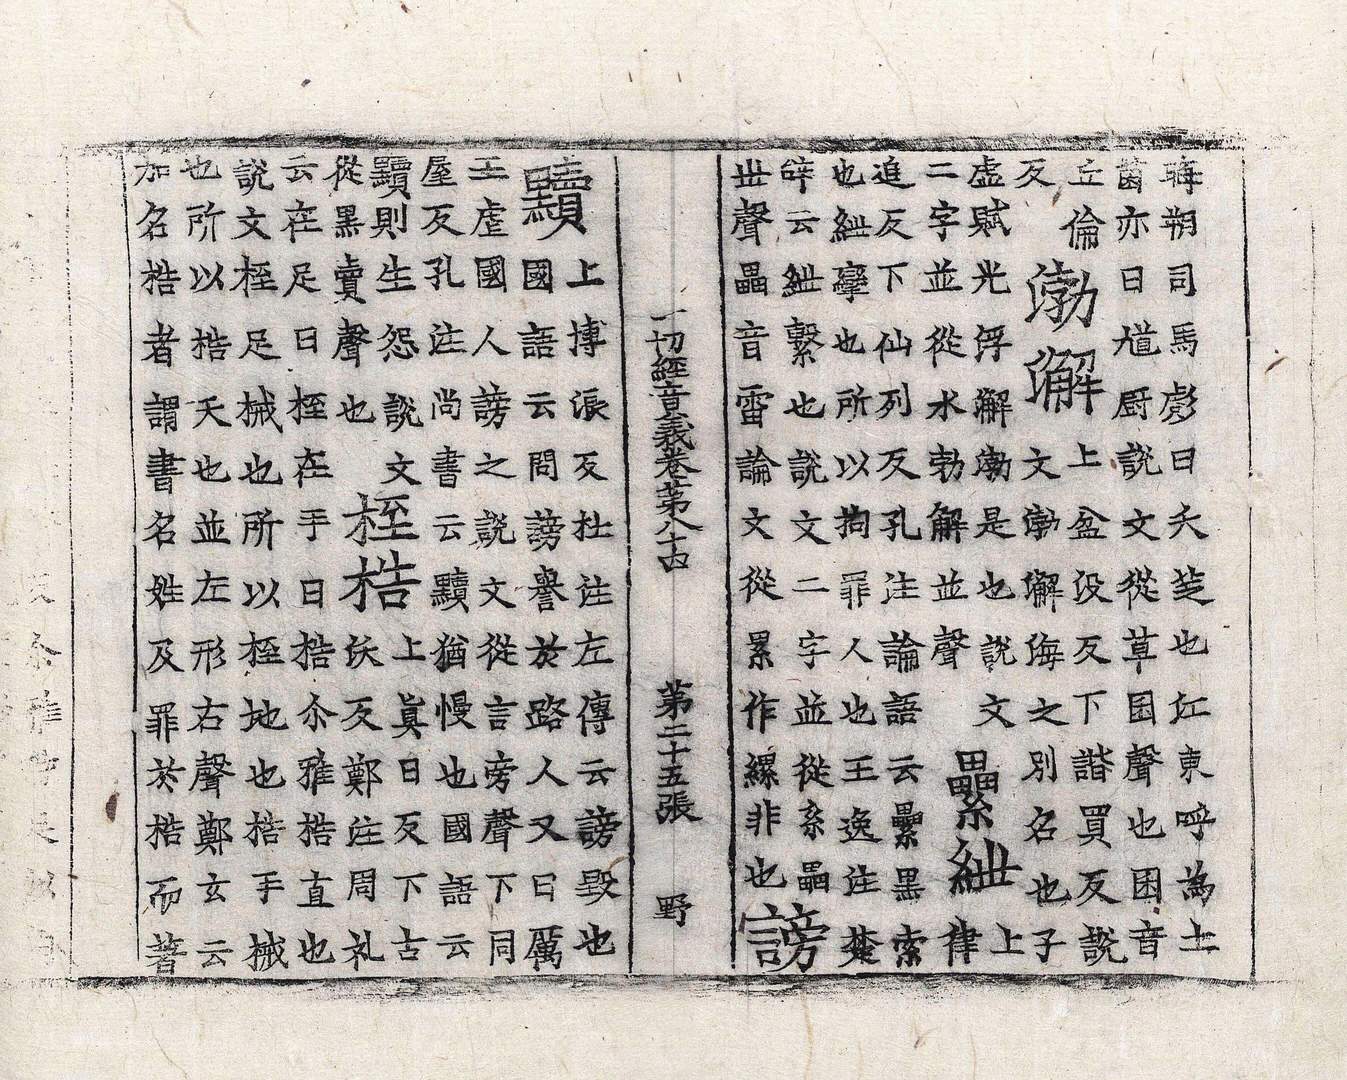 晦朔司馬彪曰大芝也江東呼為土
菌亦曰馗厨說文從草囷聲也囷音
丘倫
反
渤澥
上盆没反下諧買反說
文渤澥海之别名也子
虛賦光浮澥渤是也說文
二字並從水勃解並聲
纍紲
上
律
追反下仙列反孔注論語云纍黑索
也紲攣也所以拘罪人也王逸注楚
辝云紲繋也說文二字並從糸畾
丗聲畾音雷論文從累作縲非也
謗
一切經音義卷第八十四
第二十五張
野
黷
上博浪反杜注左傳云謗毀也
國語云問謗譽於路人又曰厲
王虐國人謗之說文從言旁聲下同
屋反孔注尚書云黷猶慢也國語云
黷則生怨說文
從黑賣聲也
桎梏
上真日反下古
沃反鄭注周礼
云在足曰桎在手曰梏尒雅梏直也
說文桎足械也所以桎地也梏手械
也所以梏天也並左形右聲鄭玄云
加名梏者謂書名姓及罪於梏而著